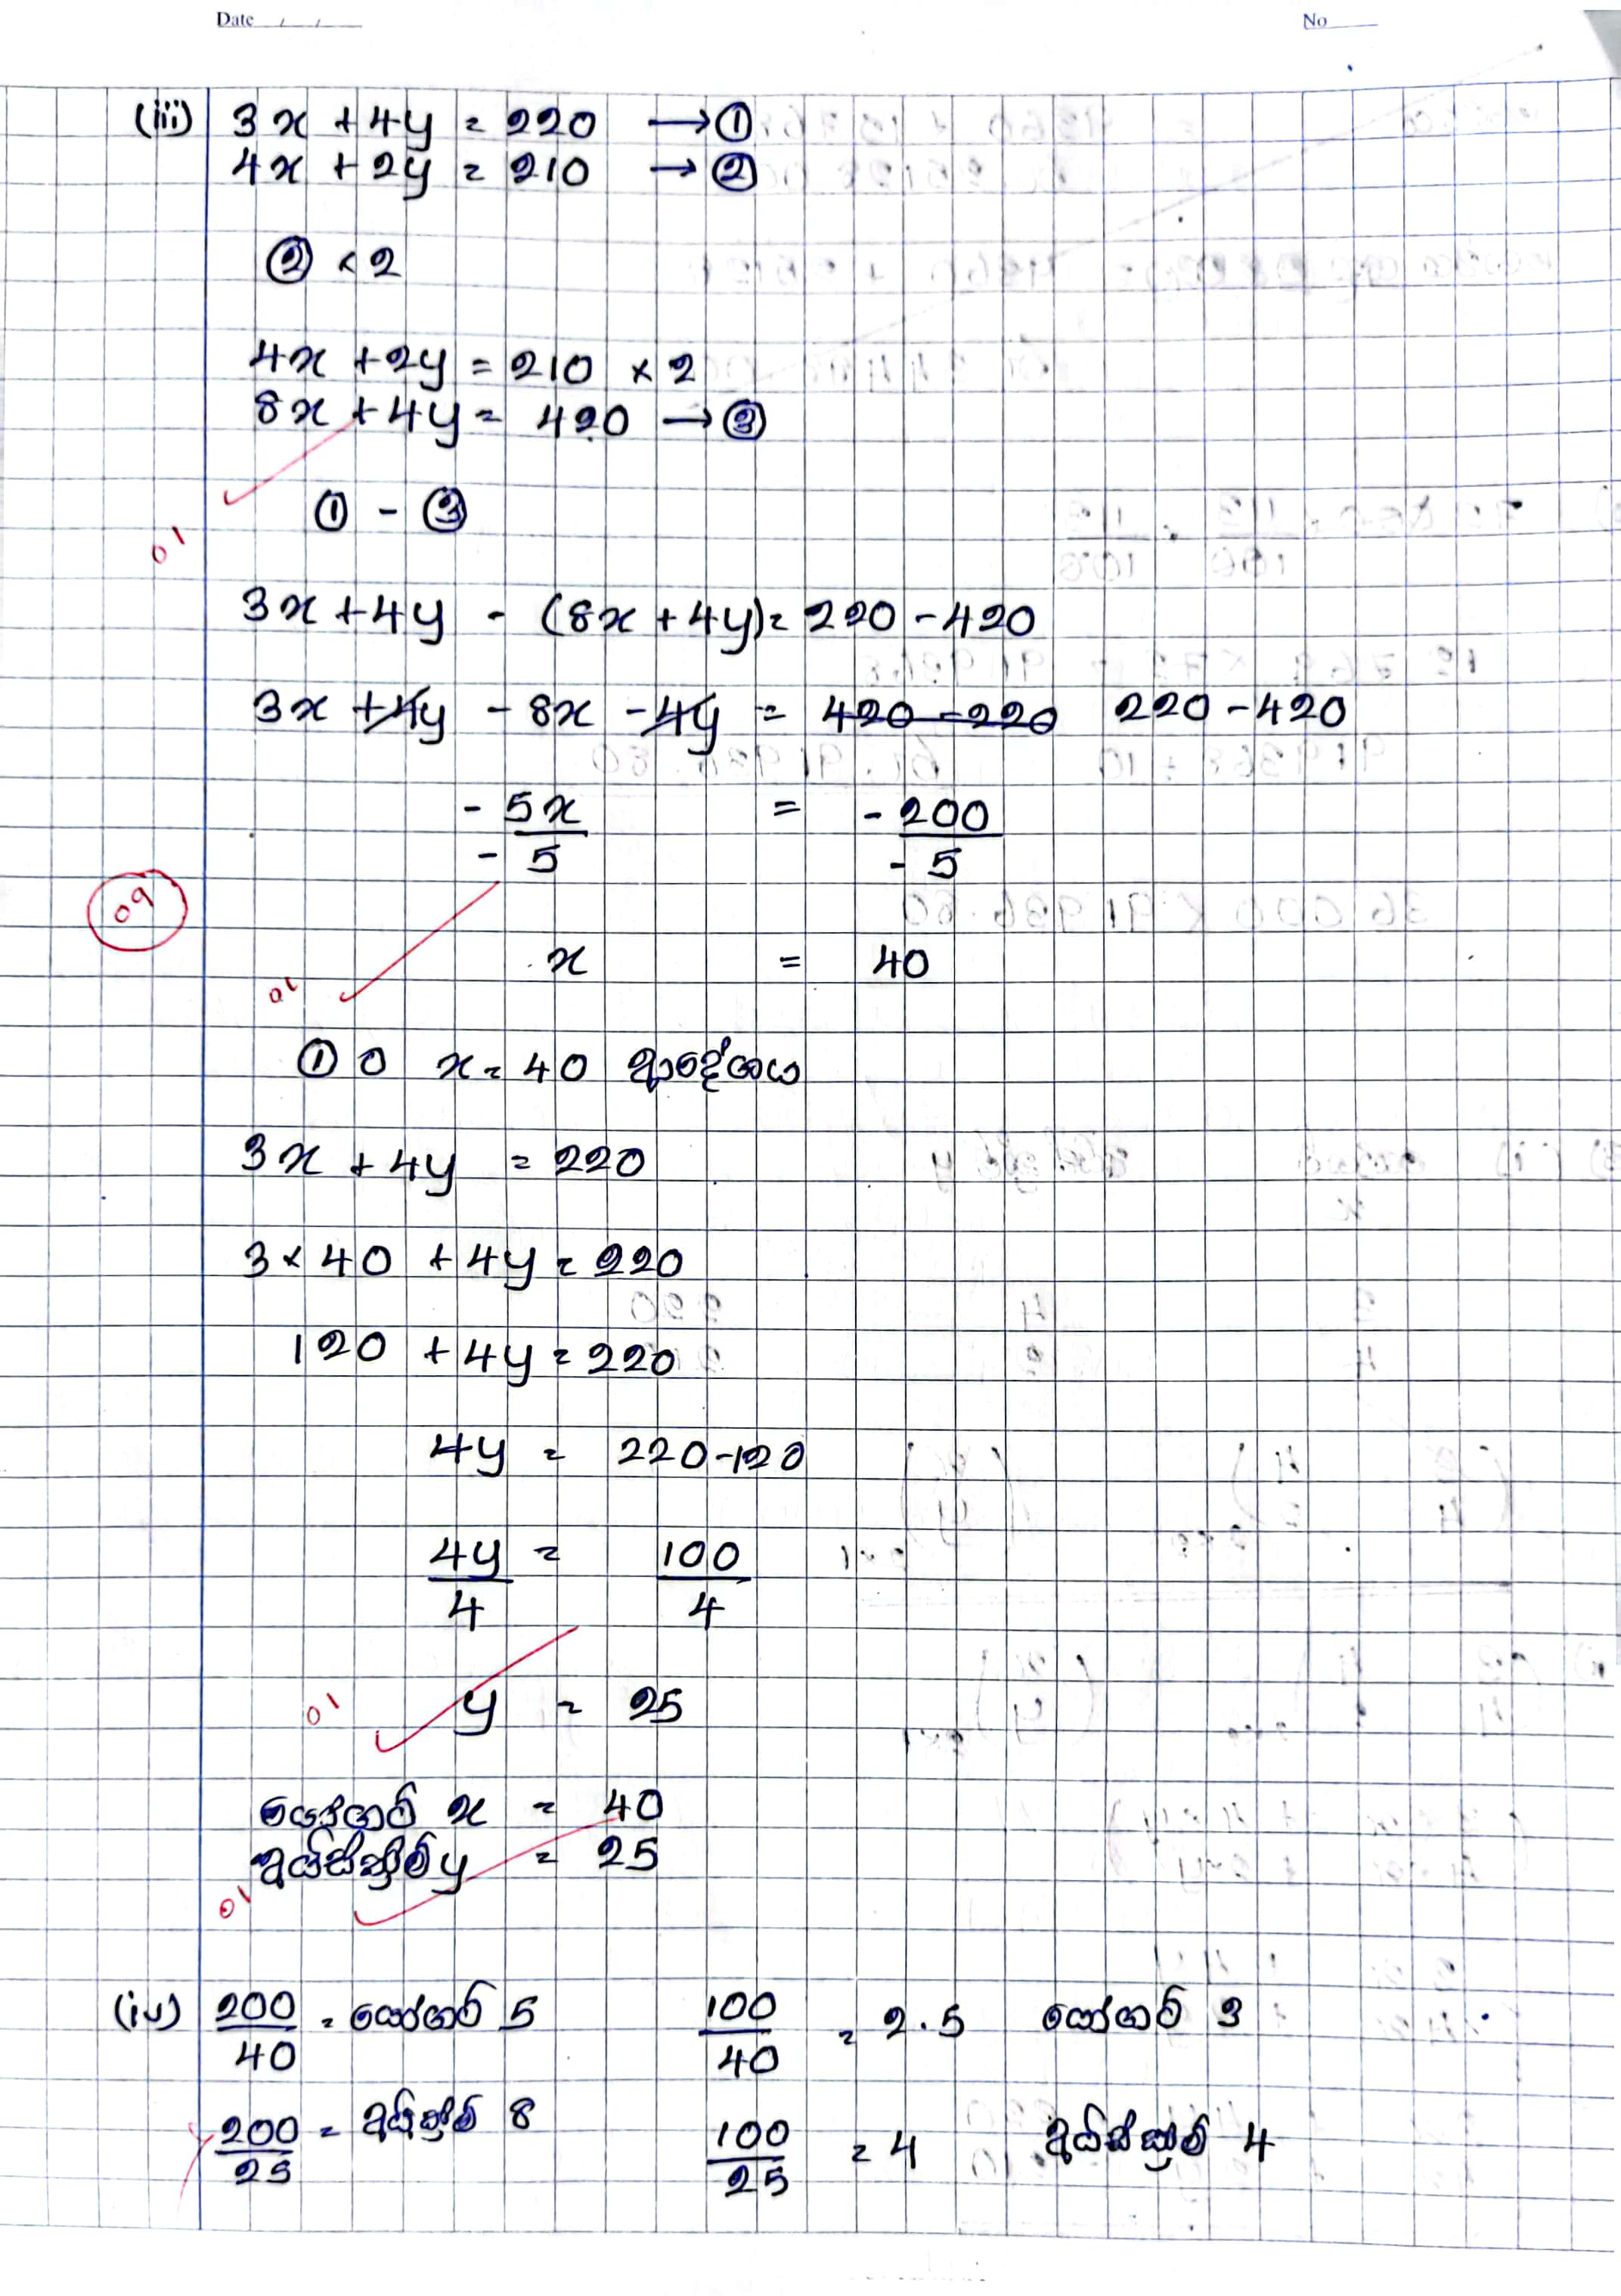 Date / /
No
(iii) 3x + 4y = 220 → ①
4x + 2y = 210 → ②
② × 2
4x + 2y = 210 × 2
8x + 4y = 420 → ③
01
① - ③
3x + 4y - (8x + 4y) = 220 - 420
3x + 4y - 8x - 4y = 420 - 220 220 - 420
- 5x = - 200
- 5 - 5
09
x = 40
01
① ට x = 40 ආදේශය
3x + 4y = 220
3 × 40 + 4y = 220
120 + 4y = 220
4y = 220 - 120
4y = 100
4 4
01
y = 25
යෝගට් x = 40
අයිස්ක්‍රීම් y = 25
01
(iv) 200/40 = යෝගට් 5 100/40 = 2.5 යෝගට් 3
200/25 = අයිස්ක්‍රීම් 8 100/25 = 4 අයිස්ක්‍රීම් 4